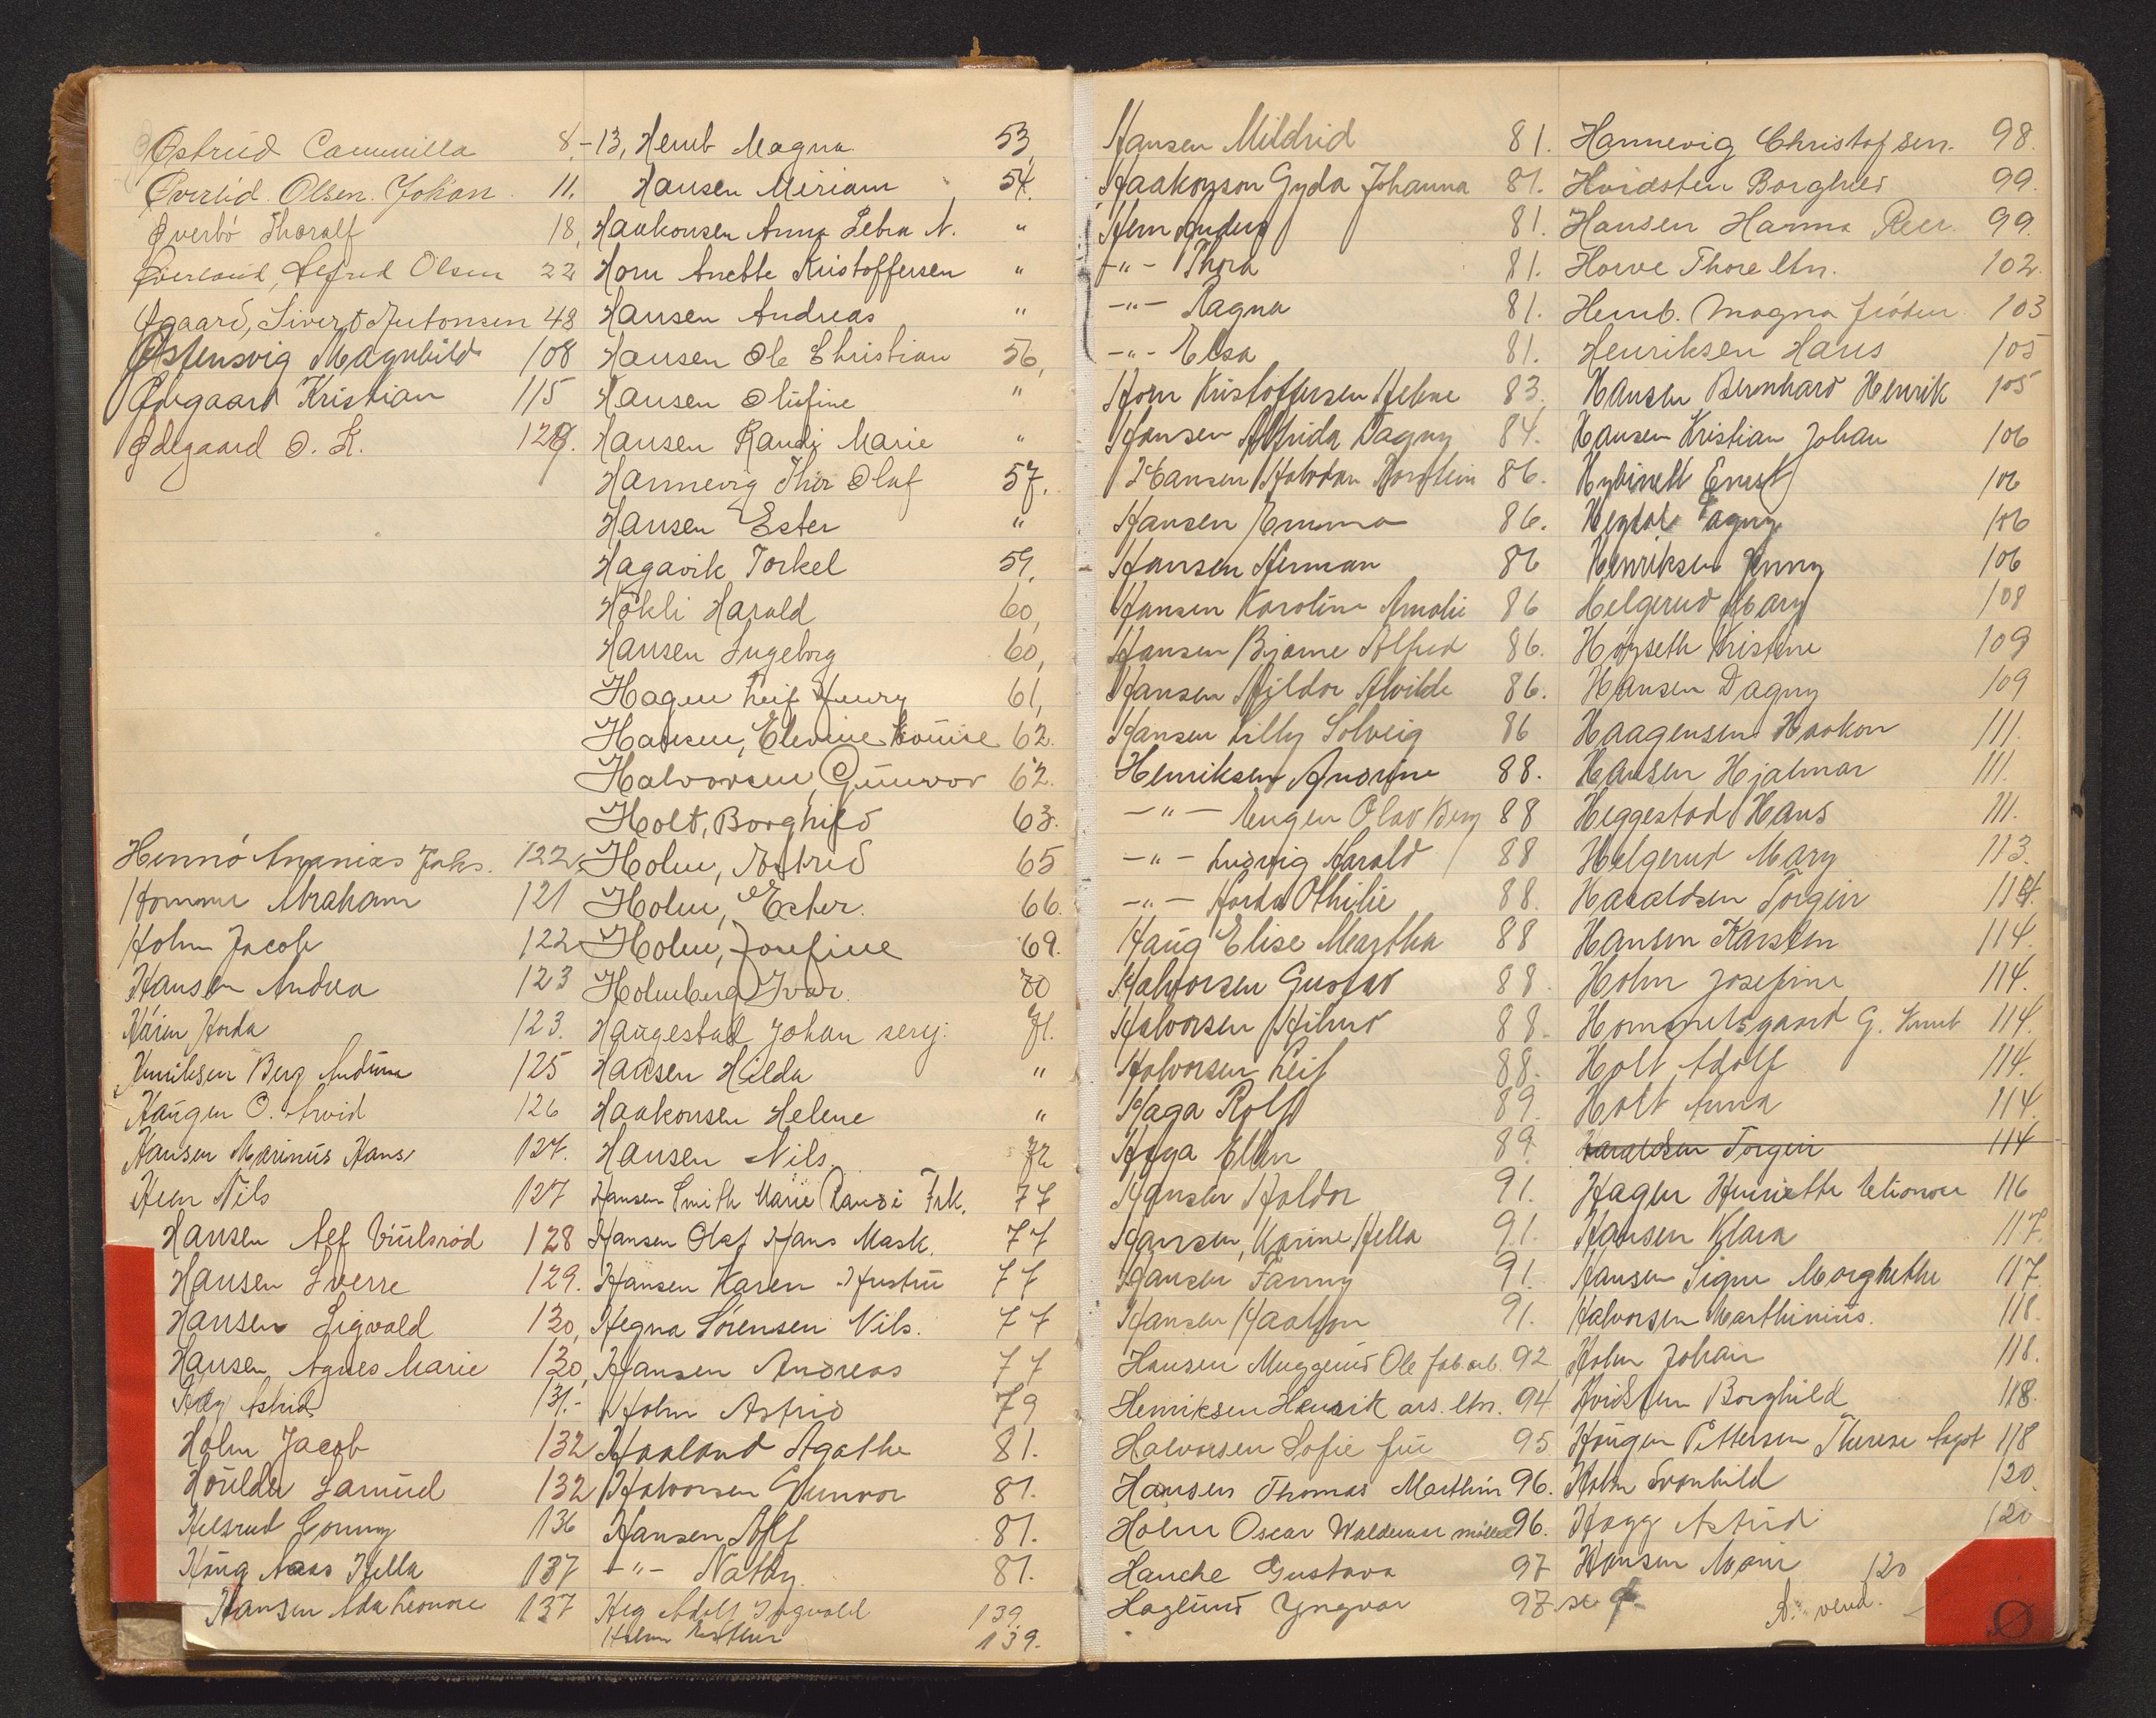 Østrud Cammilla 8,-13,
Överlid. Olsen. Johan 11.
Øverbö Tharalf 18,
Överland, Alfred Olsen 22
Øgaard, Sivert Antonsen 43
Østensvig Magnhild 108
Ødegaard Kristian 115
Ødegaard O. K. 129.
Hennö Ananias Johs. 122,
Homme Abraham 121
Holm Jacob 122
Hansen Andrea 123
Horda 123.
Henriksen Berg Andrine 125
Haugen O. Arvid 126
Hansen Marinius Hans 127.
Hem Nils 127
Hansen Alf 128
Hansen Sverre 129.
Hansen Sigvald 130,
Hansen Agnes Marie 130,
Astrid 131.-
Holm Jacob 132
Samuel 132
Helsrud Conny 136
Haug Aaas Hella 137
Hansen Ada Leonore 137
Hemb Magna 53,
Hansen Miriam 54.
Haakonsen Anna Lebra N. "
Horn Anette Kristoffersen "
Hansen Andreas "
Hansen Ole Christian 56,
Hansen Olufine "
Hansen Randi Marie "
Hannevig Thor Oluf 57.
Hansen Ester "
Hagavik Torkel 59,
Hökli Harald 60,
Hansen Ingeborg 60,
Hagen Leif Henry 61,
Hansen, Elevine Louise 62.
Halvorsen, Gunvor 62.
Holt, Borghild 63.
Holm, Astrid 65
Holm, Ester. 66.
Holm, Josefine 69.
Holmberg Ivar. 70
Haugestad Johan serg. 71.
Hansen Hilda "
Haakonsen Helene "
Hansen Nils 72
Hansen Smith Marie Randi Frk. 77
Hansen Olaf Hans Mask. 77
Hansen Karen Hustru 77
Hegna Sörensen Nils. 77
Hansen Andreas 77
Holm Astrid 79
Haaland Agathe 81.
Halvorsen Gunvor 81.
Hansen Alf 81.
-"- Nathy. 81.
Heg Adolf Ingvald 139.
Holm Esther 139.
Hansen Mildrid 81.
Haakonson Gyda Johanna 81.
Hem Anders 81.
-"- Thora 81.
-"- Ragna 81.
-"- Elsa 81.
Horn Kristoffersen Helene 83.
Hansen Alfrida Dagny 84.
Hansen Halvdan Thorstein 86.
Hansen Emma 86.
Hansen Herman 86
Hansen Karoline Amalie 86
Hansen Bjarne Alfred 86.
Hansen Hildor Alvilde 86.
Hansen Lilly Solveig 86
Henriksen Andrine 88.
-"- Eugen Olav Berg 88
-"- Ludvig Harald 88
-"- Horda Othilie 88.
Haug Elise Martha 88
Halvorsen Gustav 88.
Halvorsen Hilmar 88.
Halvorsen Leif 88.
Haga Rolf 89.
Haga Ellen 89.
Hansen Haldor 91.
Hansen, Karine Hella 91.
Hansen Fanny 91.
Hansen Haakon 91.
Hansen Muggerud Ole fab.arb. 92
Henriksen Henrik ars. ltn. 94
Halvorsen Sofie fru 95
Hansen Thomas Marthin 96.
Holm Oscar Waldemar 96.
Hauche Gustava 97
Haglund Yngvar 97.
Hannevig Christofsen. 98.
Hvidsten Borghild 99.
Hansen Hanna 99.
Horve Thore ltn. 102.
Hemb. Magna 103
Henriksen Hans 105
Hansen Bernhard Henrik 105
Hansen Kristian Johan 106
Hybinett Ernst 106
Dagny 106
Henriksen Jenny 106
Helgerud Mary 108
Höyseth Kristine 109
Hansen Dagny 109
Haagensen Haakon 111.
Hansen Hjalmar 111.
Heggestad Hans 111.
Helgerud Mary 113.
Haraldsen Torgeir 114.
Hansen Karsten 114.
Holm Josefine 114.
Hommelsgaard G. Knut 114.
Holt Adolf 114.
Holt Anna 114.
Haraldsen Torgeir 114
Hagen Henriette 116
Hansen Klara 117.
Hansen Signe Margrethe 117.
Halvorsen Marthinius. 118.
Holm Johan 118.
Hvidsten Borghild 118.
Haugen Pettersen Therese 118
Holm Svanhild 120.
Hagg Astrid 120
Hansen Marie 120
vend.
Ø